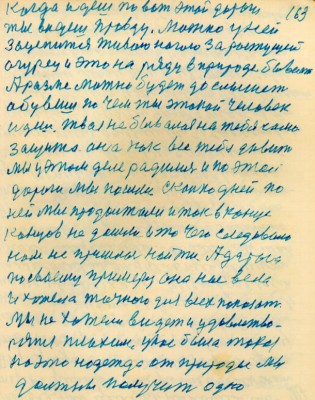 163
Когда идеш по вот этой дороги
ты видеш правду. Можно у ней
зацепится тихого наголо за ростущей
огурец и это на ряду в природе бывает
А разве можно будет до слышать
обувш по чем ты такой человек
идеш. твоя небывалая на тебя само
защита. она как все тебя давит
мы у этом деле родился и по этой
дороги мы пошли. сколко дней по
ней мы продолжали и так в конце
концов не дошли. а то чего следовало
нам не пришлось найти. А дорога
по своему примеру она нас вела
и хотела точного для всех показат
Мы не хотели видет и удовлетво-
рятся плохим. у нас была такая
на это надежда от природы мы
должны получит одно